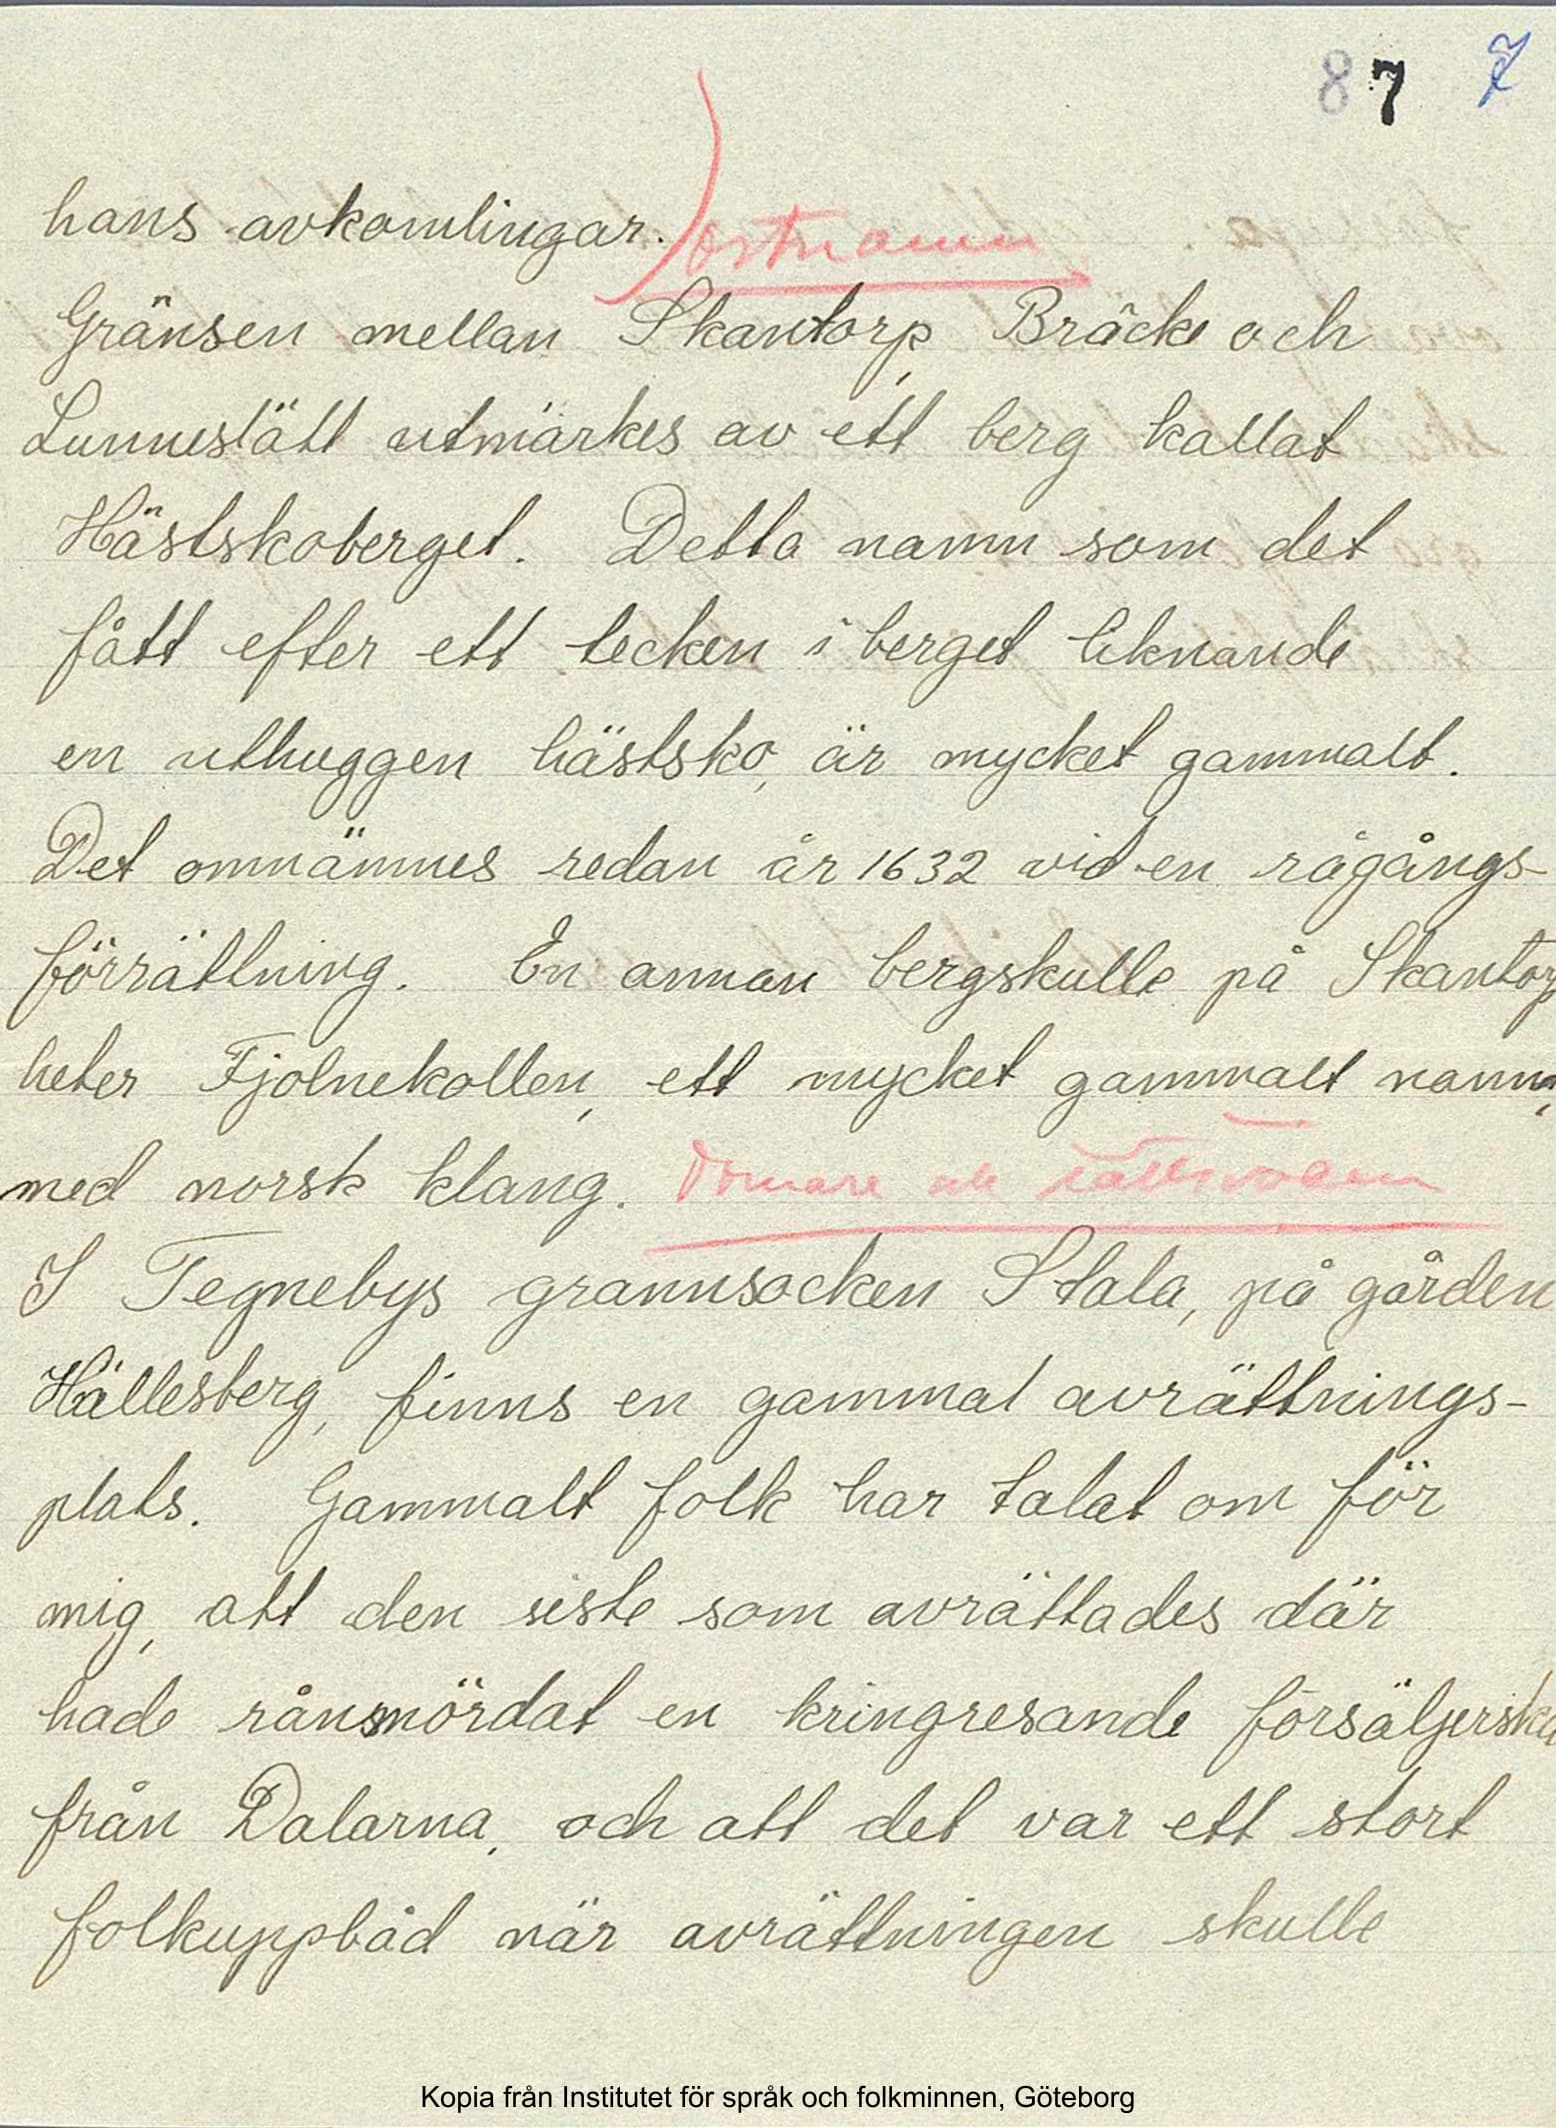 8 7 7
hans avkomlingar.) ortnamn
Gränsen mellan Skantorp, Bräcke och
Lunneslätt utmärkes av ett berg kallat
Hästskoberget. Detta namn som det
fått efter ett tecken i berget liknande
en uthuggen hästsko, är mycket gammalt.
Det omnämnes redan år 1632 vid en rågångs-
förrättning. En annan bergskulle på Skantorp
heter Fjolnekollen, ett mycket gammalt namn,
med norsk klang. Domare och rättsväsen
I Tegnebys grannsocken Stala, på gården
Hällesberg, finns en gammal avrättnings-
plats. Gammalt folk har talat om för
mig, att den siste som avrättades där
hade rånsmördat en kringresande försäljerska
från Dalarna, och att det var ett stort
folkuppbåd när avrättningen skulle
Kopia från Institutet för språk och folkminnen, Göteborg